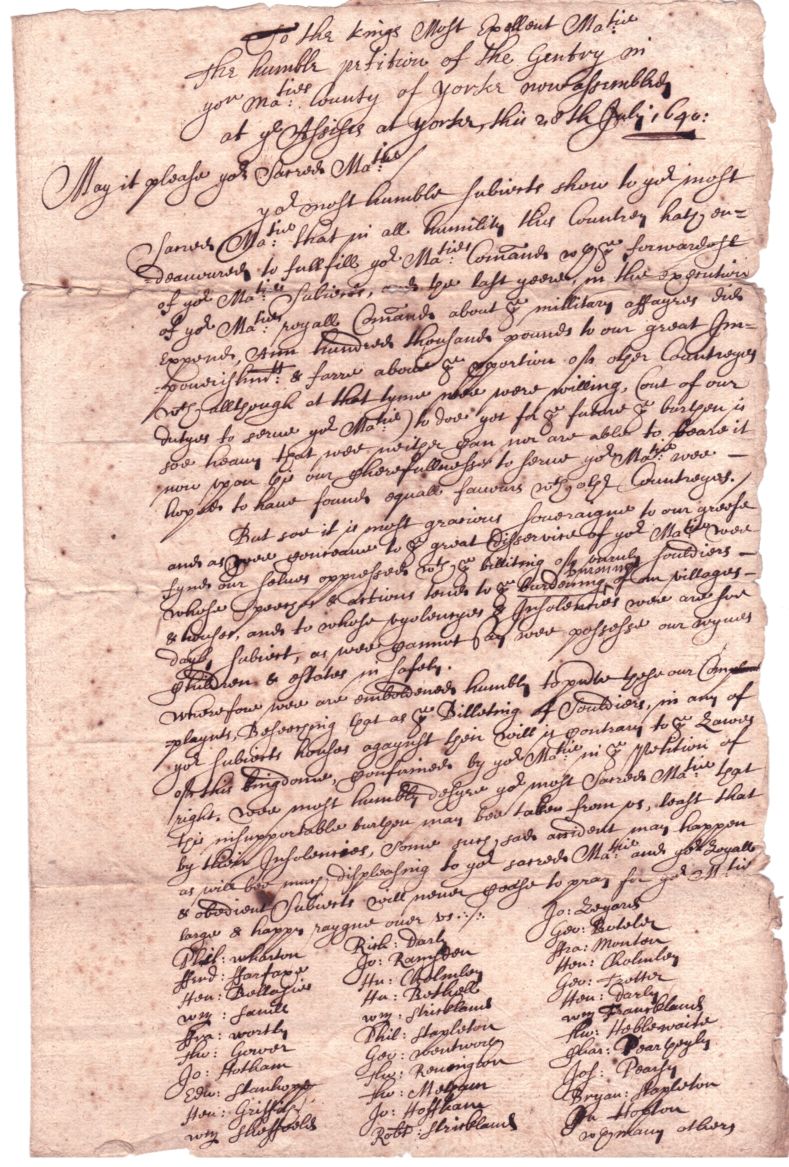 To the Kings Most Exellent Ma:tie
The humble petition of the Gentry in
yor Ma:ties County of Yorke now assembled
at ye Assises at Yorke, this 28th July 1640:
May it please yor Sacred Ma:tie
yor most humble subiects show to yor most
Sacred Ma:tie that in all humility this Countrey hath en=
=deauoured to fullfill yor Ma:ties Comands wth ye forwardest
of yor Ma:ties Subiects, and the last yeere, in the execution
of yor Ma:ties royall Comands about ye millitary affayres did
Expend, Ann hundred thousand pounds to our great Im=
=pouerishmtt & farre aboue ye portion of other Countreyes
wch allthough at that tyme wee were willing, (out of our
dutyes to serue yor Ma:tie) to doe yet for ye future ye burthen is
soe heauy that wee neither can nor are able to beare it
now vpon his our cherefullnesse to serue yor Ma:tie wee
hoped to haue found equall fauour wth other Countreyes.
But soe it is most gracious soueraigne to our greefe
and as wee conceaue to ye great disseruice of yor Ma:tie wee
fynd our selues oppressed wth ye billiting of vnruly souldiers
whose speeches & actions tend to ye burdening burning of our villages
& houses, and to whose vyolencyes & Insolencies wee are soe
dayly subiect, as wee cannot say wee possesse our wyues
children & estates in safety.
Wherefore wee are emboldened humbly to these our Com
playnts, Beseeching that as ye Billeting of Souldiers, in any of
yor subiects houses agaynst their will is contrary to ye Lawes
of this kingdome, confirmed by yor Ma:tie in ye Petition of
right. wee most humbly desyre yor most Sacred Ma:tie that
this insupportable burthen may bee taken from vs, least that
by their Insolencies, some such sad accident may happen
as will bee much displeasing to yor sacred Ma:tie and yor Loyall
& obedient Subiects will neuer cease to pray for yor Ma:ties
large & happy raygne ouer vs
Phil: wharton Rich: Darly Jo: Legard
ffrd: ffarfaxe Jo: Ramsden Geo: Boteler
Hen: Bellasise Hu: Cholmley Fra: Monton
wm Sauile Hu: Bethell Hen: Cholmley
ffra: wortly wm Strickland Geo: Trotter
Tho: Gower Phil: Stapleton Hen: Darly
Jo: Hotham Geo: wentworth wm Franckland
Edw: Stanhope Tho: Remington Tho: Heblewaite
Hen: Griffin Tho: Metham
wm Sheffeild Jo: Hotham Jos: Peachy
Robt: Strickland Bryan: Stapleton
Hopton
wth many others